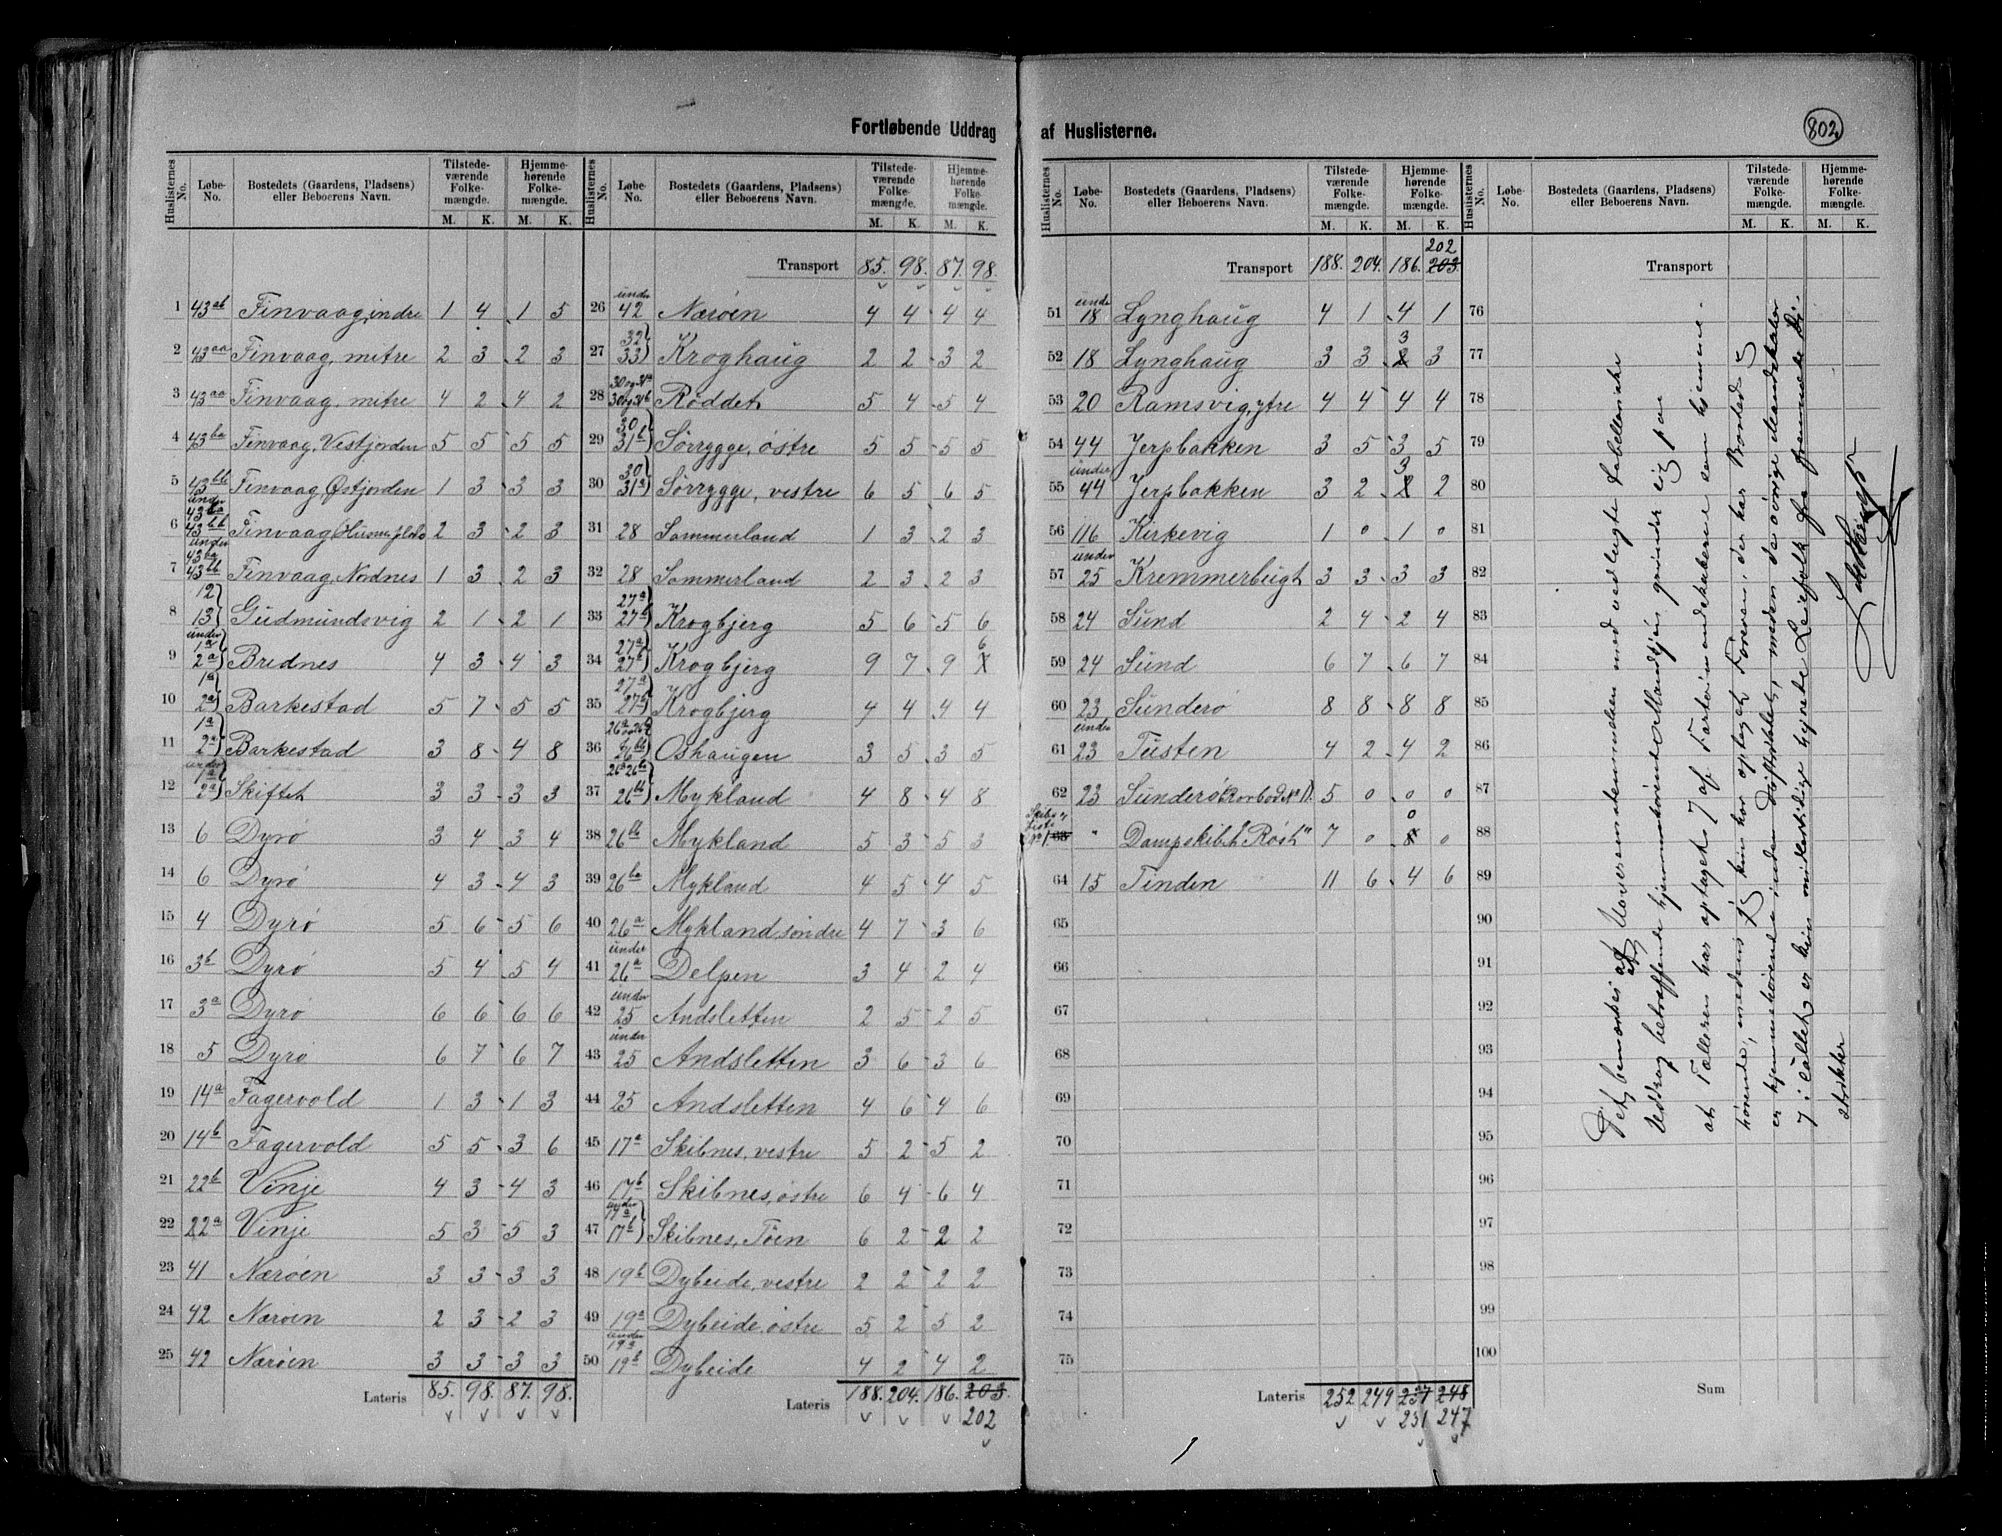 Fortløbende Uddrag af Huslisterne.
802
Huslisternes No. Løbe-No. Bostedets (Gaardens, Pladsens) eller Beboerens Navn. Tilstedeværende Folkemængde. M. K. Hjemmehørende Folkemængde. M. K.
1 43ab Finvaag, indre 1 4 1 5
2 43aa Finvaag, mitre 2 3 2 3
3 43aa Finvaag, mitre 4 2 4 2
4 43ba Finvaag, Vestjorden 5 5 5 5
5 43bb Finvaag, Østjorden 1 3 3 3
6 under 43ba 43bb Finvaag, Husmplads 2 3 2 3
7 under 43ba 43bb Finvaag, Nordnes 1 3 2 3
8 12 13 Gudmundsvig 2 1 2 1
9 under 1a 2a Brednes 4 3 4 3
10 1a 2a Barkestad 5 7 5 5
11 1a 2a Barkestad 3 8 4 8
12 under 1a 2a Skiftet 3 3 3 3
13 6 Dyrø 3 4 3 4
14 6 Dyrø 4 3 4 3
15 4 Dyrø 5 6 5 6
16 3b Dyrø 5 4 5 4
17 3a Dyrø 6 6 6 6
18 5 Dyrø 6 7 6 7
19 14a Fagervold 1 3 1 3
20 14b Fagervold 5 5 3 6
21 22b Vinje 4 3 4 3
22 22a Vinje 5 3 5 3
23 41 Nærøen 3 3 3 3
24 42 Nærøen 2 3 2 3
25 42 Nærøen 3 3 3 3
Lateris 85. 98. 87. 98.
Huslisternes No. Løbe-No. Bostedets (Gaardens, Pladsens) eller Beboerens Navn. Tilstedeværende Folkemængde. M. K. Hjemmehørende Folkemængde. M. K.
Transport 85. 98. 87. 98.
26 under 42 Nærøen 4 4 4 4
27 32 33 Kroghaug 2 2 3 2
28 30 og 31a 30 og 31b Røddet 5 4 5 4
29 30 31b Sørrygge, østre 5 5 5 5
30 30 31a Sørrygge, vestre 6 5 6 5
31 28 Sommerland 1 3 2 3
32 28 Sommerland 2 3 2 3
33 27a 27b Krogbjerg 5 6 5 6
34 27a 27b Krogbjerg 9 7 9 6
35 27a 27b Krogbjerg 4 4 4 4
36 26a 26bb Oshaugen 3 5 3 5
37 26a 26ba 26bb Mykland 4 8 4 8
38 26bb Mykland 5 3 5 3
39 26ba Mykland 4 5 4 5
40 26a Mykland, søndre 4 7 3 6
41 under 26a Delpen 3 4 2 4
42 under 25 Andsletten 2 5 2 5
43 under 25 Andsletten 3 6 3 6
44 25 Andsletten 4 6 4 6
45 17a Skibnes, vestre 5 2 5 2
46 17b Skibnes, østre 6 4 6 4
47 under 17a 17b Skibnes, Tøen 6 2 2 2
48 19b Dybeide, vestre 2 2 2 2
49 19a Dybeide, østre 5 2 5 2
50 under 19a 19b Dybeide 4 2 4 2
Lateris 188. 204. 186. 203.
202
Huslisternes No. Løbe-No. Bostedets (Gaardens, Pladsens) eller Beboerens Navn. Tilstedeværende Folkemængde. M. K. Hjemmehørende Folkemængde. M. K.
202
Transport 188. 204. 186. 203.
51 under 18 Lynghaug 4 1 4 1
52 18 Lynghaug 3 3 3 3
53 20 Ramsvig, ytre 4 4 4 4
54 44 Jerpbakken 3 5 3 5
55 under 44 Jerpbakken 3 2 3 2
56 116 Kirkevig 1 0 1 0
57 under 25 Kremmerbeugt 3 3 3 3
58 24 Sund 2 4 2 4
59 24 Sund 6 7 6 7
60 23 Sunderø 8 8 8 8
61 under 23 Tusten 4 2 4 2
62 23 Sunderø (Rorbod No 1). 5 0 0 0
63 " Dampskibet "Røst" 7 0 0 0
64 15 Tinden 11 6 4 6
65
66
67
68
69
70
71
72
73
74
75
Lateris 252 249 237 248
231 247
Huslisternes No. Løbe-No. Bostedets (Gaardens, Pladsens) eller Beboerens Navn. Tilstedeværende Folkemængde. M. K. Hjemmehørende Folkemængde. M. K.
Transport
76
77
78
79
80
81
82
83
84
85
86
87
88
89
90
91
92
93
94
95
96
97
98
99
100
Sum
Det bemærkes at Uoverensstemmelsen med vedlagte tabellariske
Uddrag betræffende hjemmehørende Mandkjøn grunder sig paa
at Tælleren har optaget 7 af Fartøimandskaberne som hjemme-
hørende, medens kun har optaget Føreren, der har Bosted
er hjemmehørende inden Distriktet, medens de øvrige Mandskaber
7 i Tallet er kun midlertidige hyrede Leiefolk fra fremmede Di-
strikter